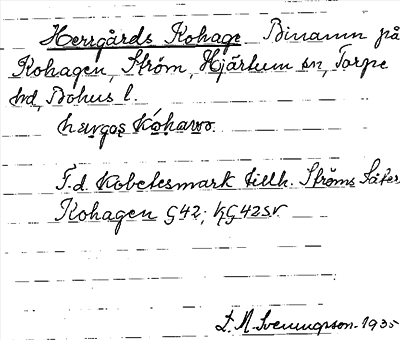 Herrgårds Kohage Binamn på
Kohagen, Ström, Hjärtum sn, Torpe
hd, Bohus l.
F.d. kobetesmark tillh. Ströms Säteri
Kohagen G42; KG42SV
L. M. Svenungsson. 1935